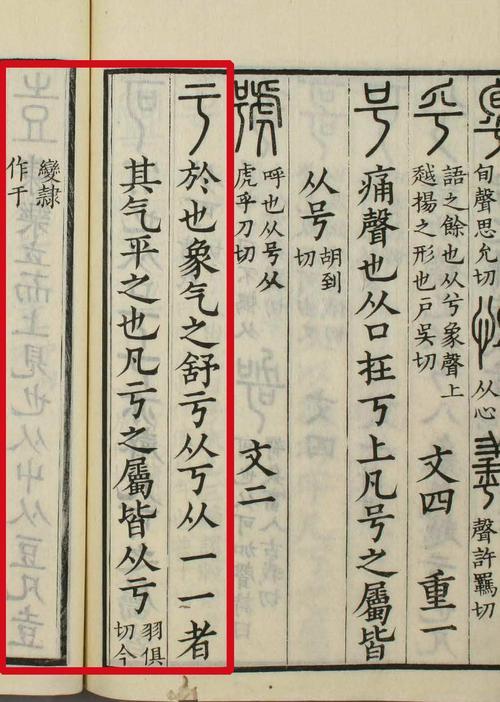 旬聲思允切
从心
聲許羈切
乎
語之餘也从兮象聲上
越揚之形也戶吳切
文四
重一
号
痛聲也从口在丂上凡号之屬皆
从号
胡到
切
號
呼也从号从
虎乎刀切
文二
亏
於也象气之舒亏从丂从一一者
其气平之也凡亏之屬皆从亏
羽俱
切今
變隷
作于